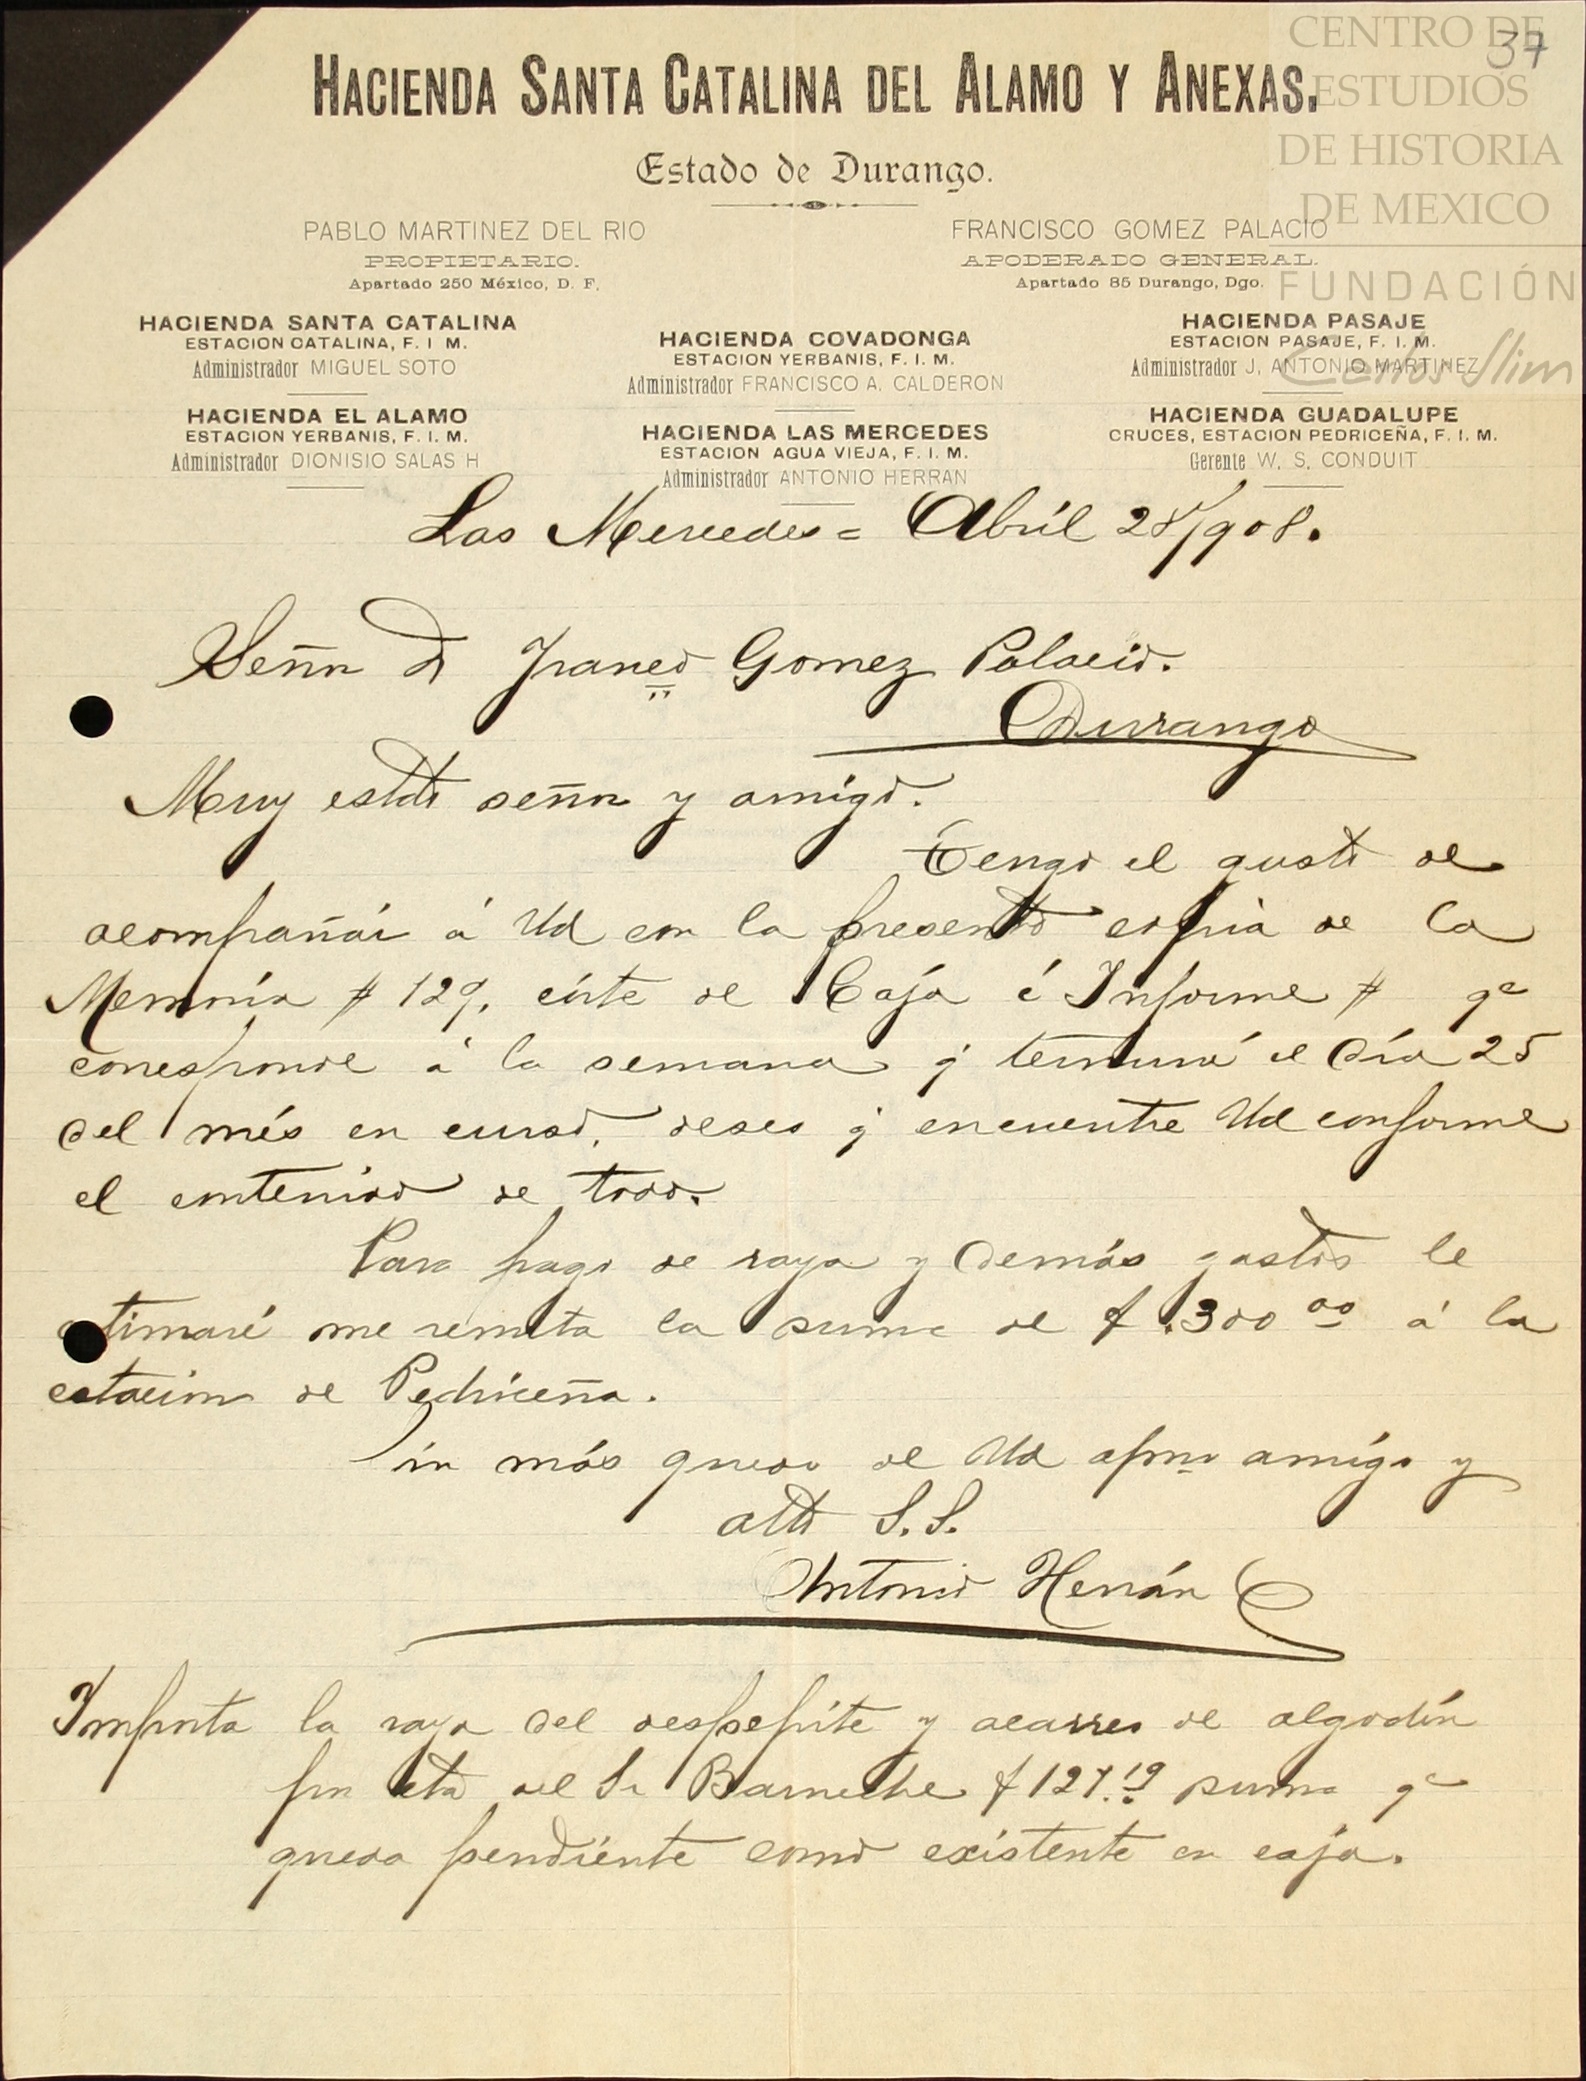 CENTRO DE
ESTUDIOS
DE HISTORIA
DE MEXICO
FUNDACIÓN
Carlos Slim
37
HACIENDA SANTA CATALINA DEL ALAMO Y ANEXAS.
Estado de Durango.
PABLO MARTINEZ DEL RIO
PROPIETARIO.
Apartado 250 México, D. F.
FRANCISCO GOMEZ PALACIO
APODERADO GENERAL.
Apartado 85 Durango, Dgo.
HACIENDA SANTA CATALINA
ESTACION CATALINA, F. I M.
Administrador MIGUEL SOTO
HACIENDA EL ALAMO
ESTACION YERBANIS, F. I. M.
Administrador DIONISIO SALAS H
HACIENDA COVADONGA
ESTACION YERBANIS, F. I. M.
Administrador FRANCISCO A. CALDERON
HACIENDA LAS MERCEDES
ESTACION AGUA VIEJA, F. I. M.
Administrador ANTONIO HERRAN
HACIENDA PASAJE
ESTACION PASAJE, F. I. M.
Administrador J. ANTONIO MARTINEZ
HACIENDA GUADALUPE
CRUCES, ESTACION PEDRICEÑA, F. I. M.
Gerente W. S. CONDUIT
Las Mercedes = Abril 28/908.
Señor D Franco Gomez Palacio.
Durango
Muy estdo señor y amigo.
Tengo el gusto de
acompañár á Ud con la presente copia de la
Memoria # 129, córte de Cája é Informe # qe
corresponde á la semana q terminó el día 25
del més en curso, deseo q encuentre Ud conforme
el contenido de todo.
Para pago de raya y demás gastos le
estimaré me remita la suma de $ 300 00 á la
estacion de Pedriceña.
Sin más quedo de Ud afmo amígo y
atto S. S.
Antonio Herrán
Importa la raya del despepíte y acarreo de algodón
por cta del Sr Barneche $ 127.19 suma qe
queda pendiente como exístente en caja.